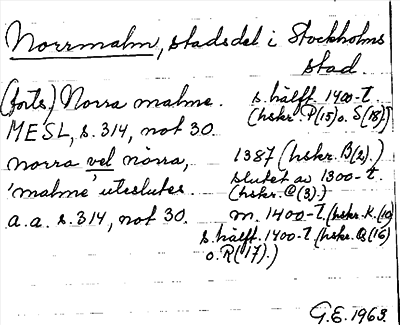 Norrmalm, stadsdel i Stockholms
stad.
(forts) Norra malme. s. hälft. 1400-t.
(hskr. P(15) o. S(18))
MESL, s. 314, not 30.
norra vel nörra, 1387 (hskr. B(2).)
'malme' uteslutes. slutet av 1300-t.
(hskr. C(3).)
a.a. s. 314, not 30. m. 1400-t. (hskr. K. (10)
s. hälft. 1400-t (hskr. Q(16)
o. R(17).)
G.E. 1963.